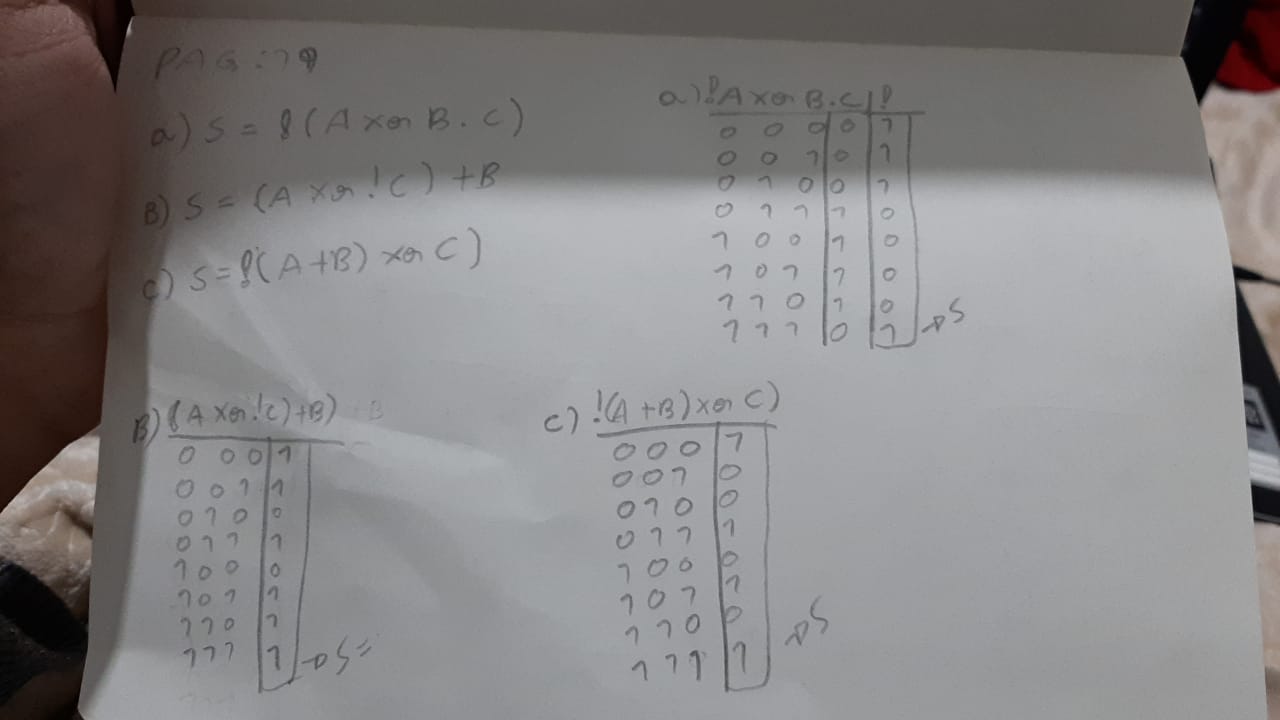 PAG: 19
a) S = !(A xor B . C)
B) S = (A xor !C) + B
C) S = !(A+B) xor C)
a) !A xor B.C !
0 0 0 0 1
0 0 1 0 1
0 1 0 0 1
0 1 1 1 0
1 0 0 1 0
1 0 1 1 0
1 1 0 1 0
1 1 1 0 1 → S
B) (A xor !C) + B)
0 0 0 1
0 0 1 1
0 1 0 0
0 1 1 1
1 0 0 0
1 0 1 1
1 1 0 1
1 1 1 1 → S =
C) !(A + B) xor C)
0 0 0 1
0 0 1 0
0 1 0 0
0 1 1 1
1 0 0 0
1 0 1 1
1 1 0 0
1 1 1 1 → S